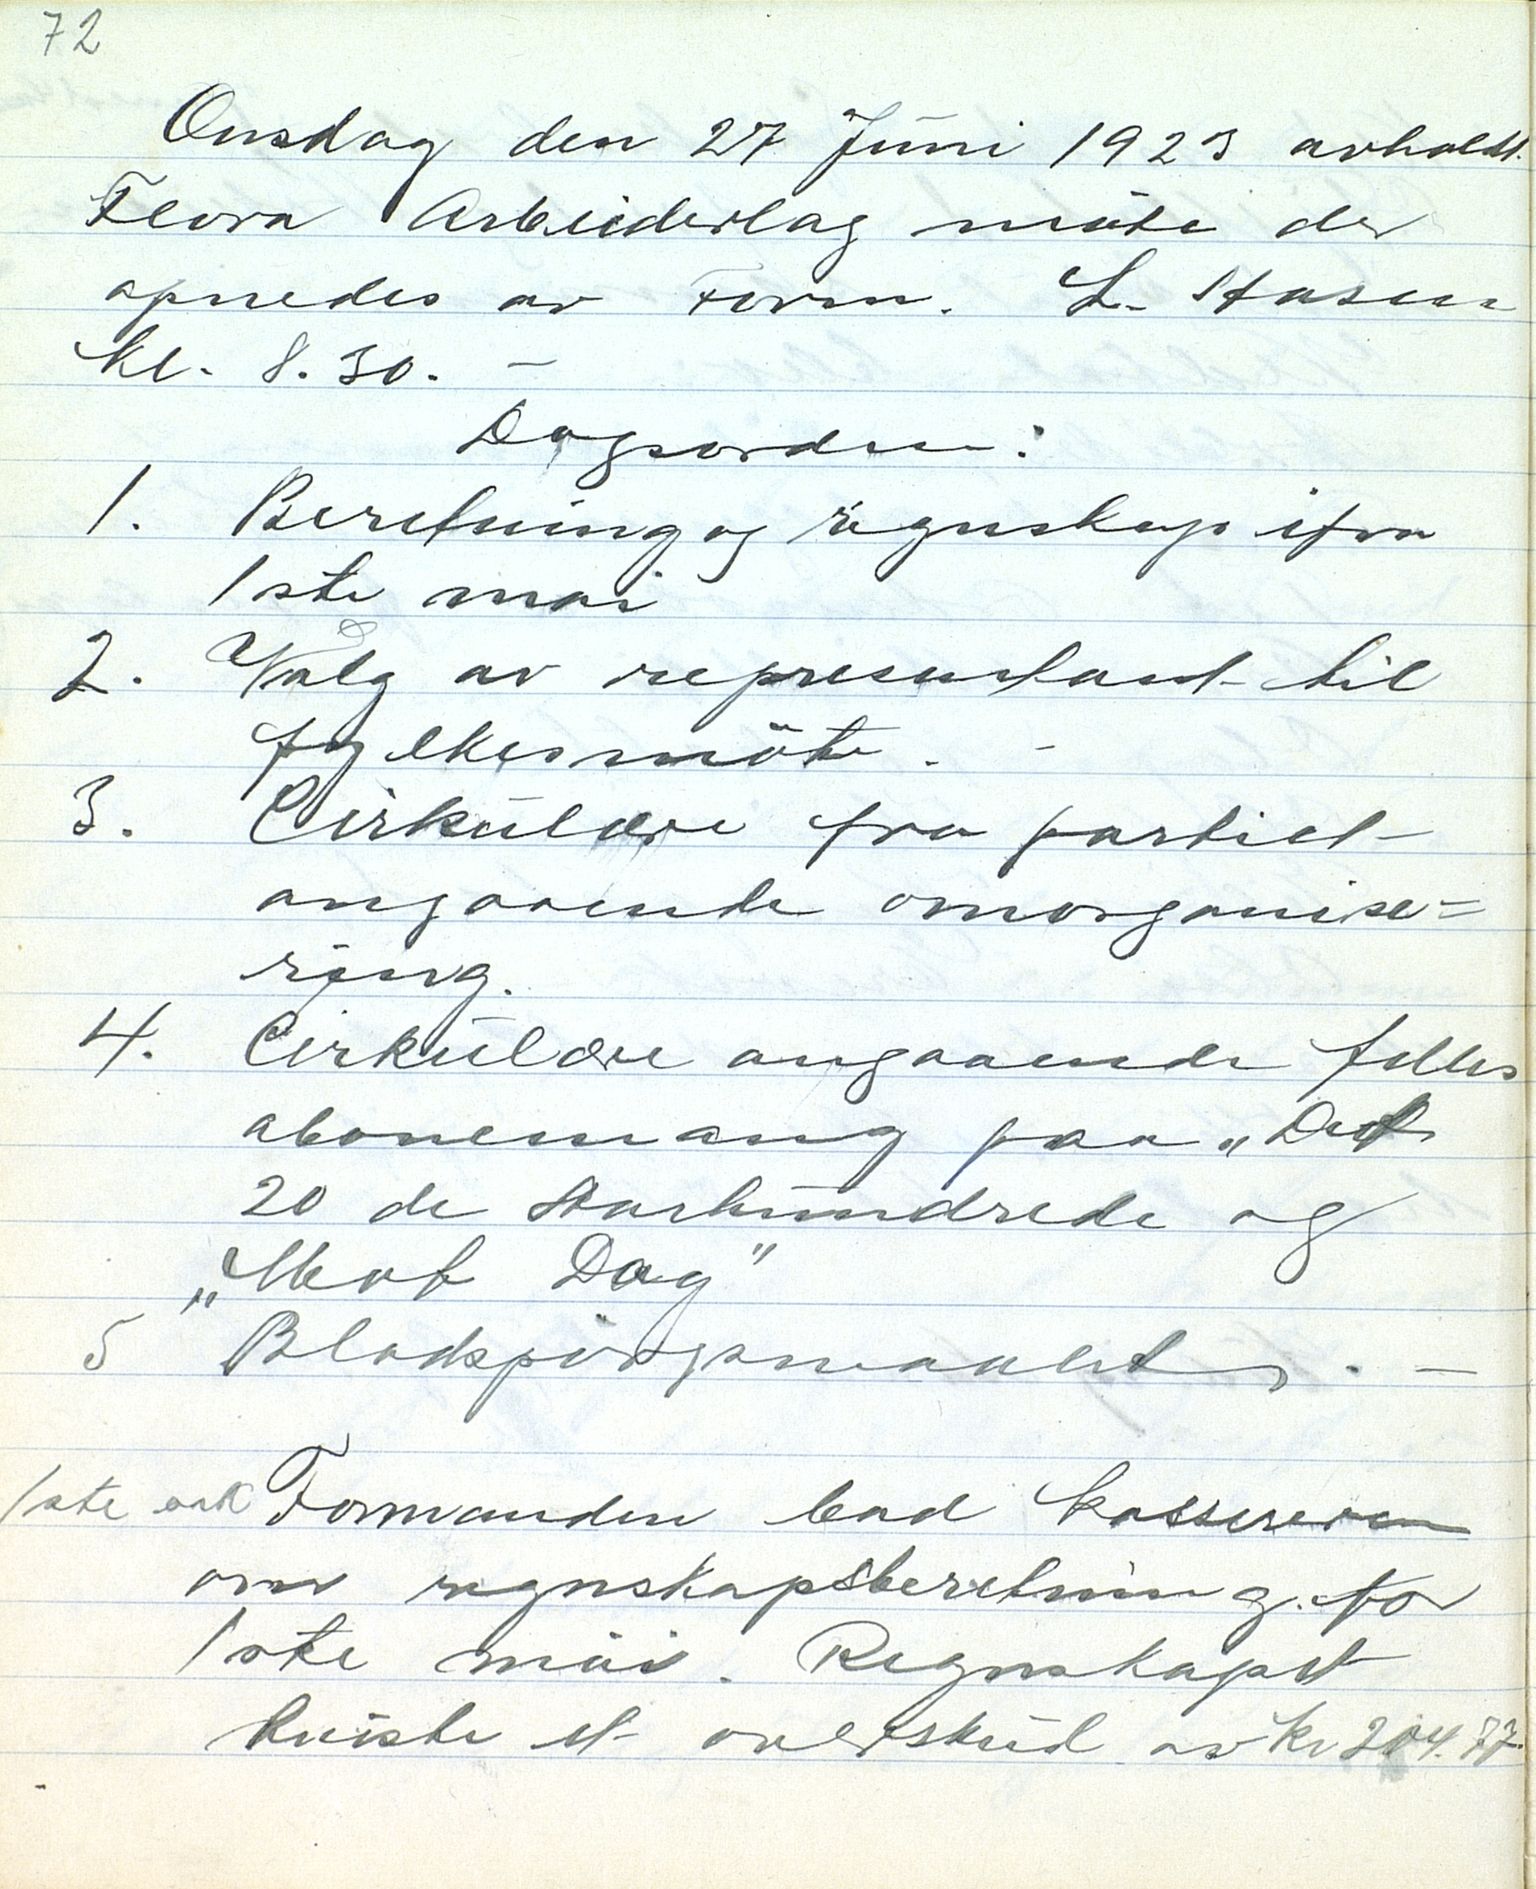 72
Onsdag den 27 Juni 1923 avholdt
Flora Arbeiderlag möte der
apnedes av Form. L. Hasen
kl. 8.30. —
Dagsorden:
1. Beretning og regnskap ifra
1ste mai
2. Valg av representant til
fylkesmöte. -
3. Cirkulære fra partiet
angaaende omorganise=
ring.
4. Cirkulære angaaende felles
abonemang paa „Det
20 de Aarhundrede og
„Mot Dag"
5 Bladspörgsmaalet. —
1ste sak Formanden bad kassereren
om regnskapsberetning for
1ste mai. Regnskapet
viste et overskud av kr 204.77.